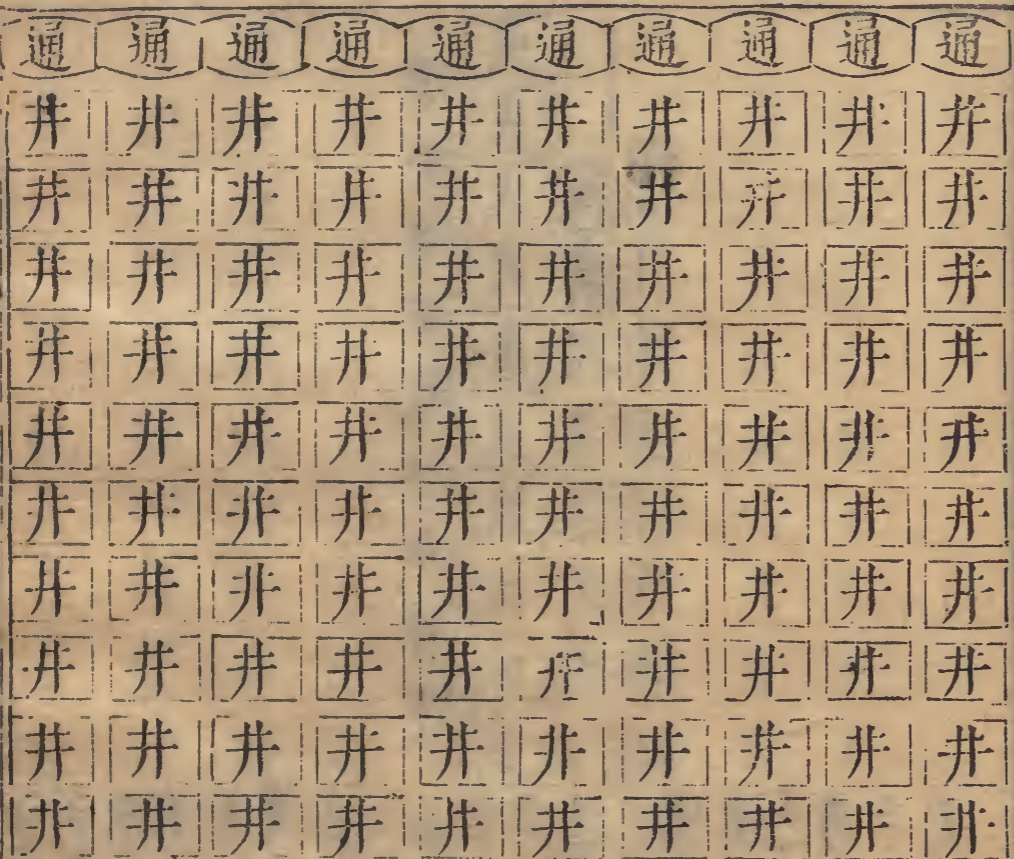 通 通 通 通 通 通 通 通 通 通
井 井 井 井 井 井 井 井 井 井
井 井 井 井 井 井 井 井 井 井
井 井 井 井 井 井 井 井 井 井
井 井 井 井 井 井 井 井 井 井
井 井 井 井 井 井 井 井 井 井
井 井 井 井 井 井 井 井 井 井
井 井 井 井 井 井 井 井 井 井
井 井 井 井 井 井 井 井 井 井
井 井 井 井 井 井 井 井 井 井
井 井 井 井 井 井 井 井 井 井